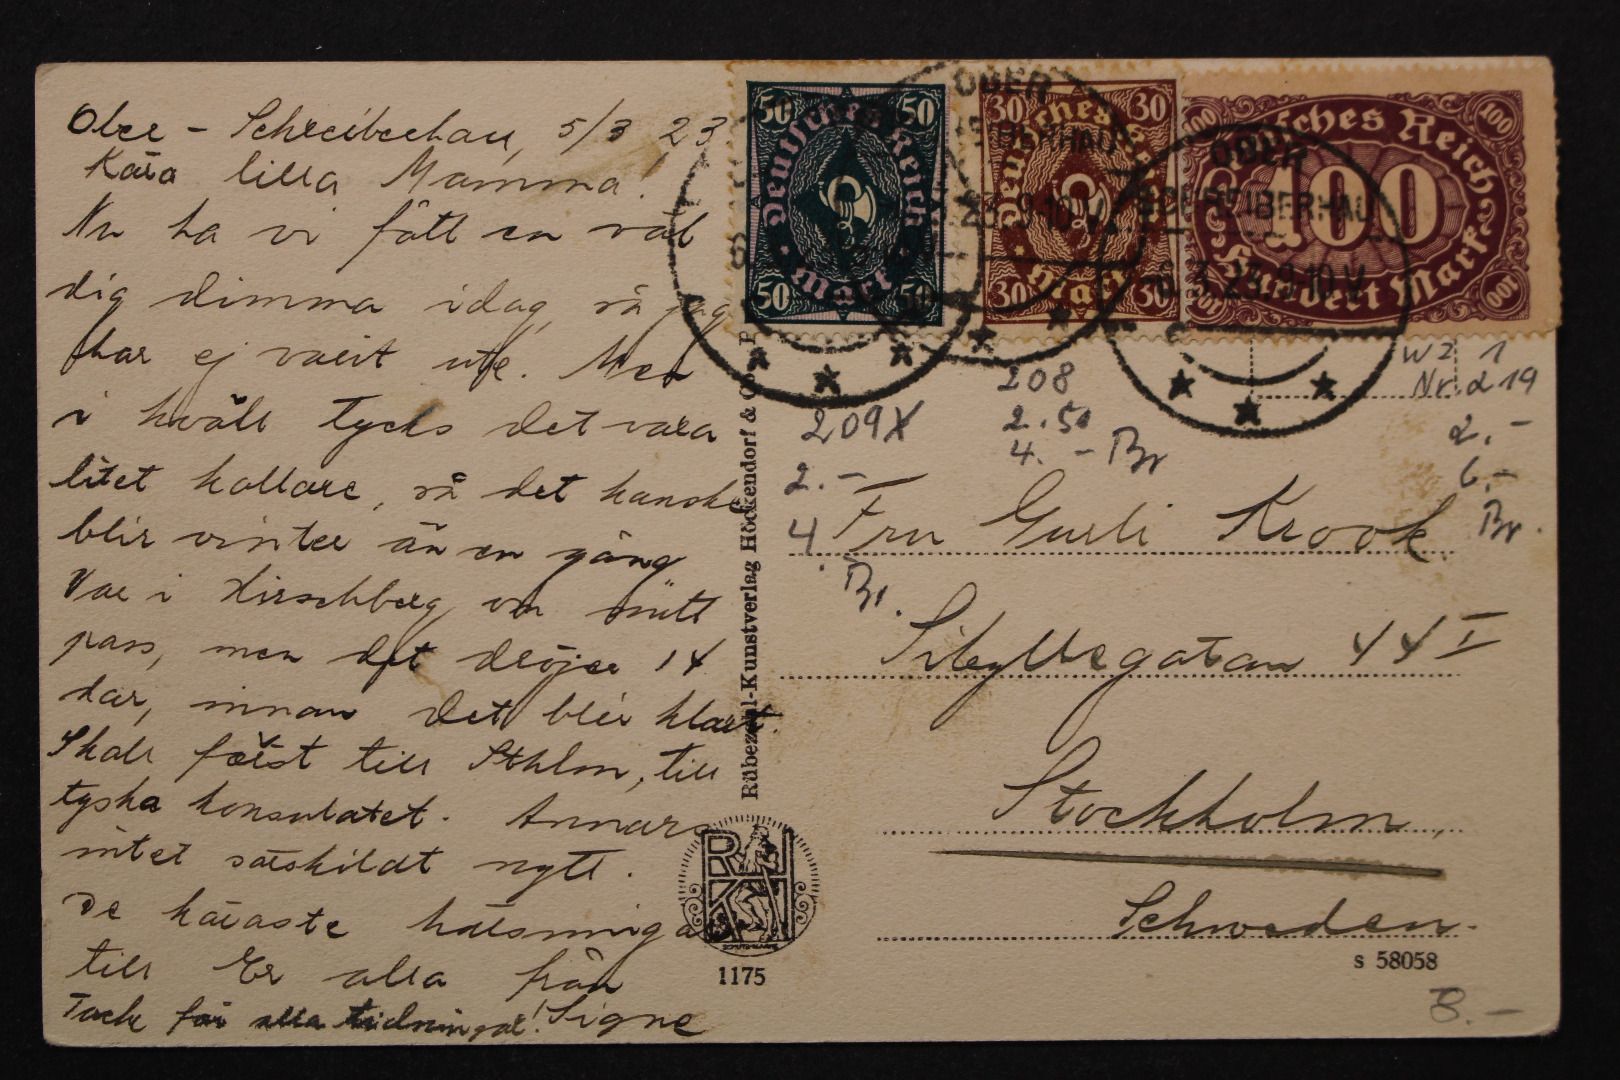 Ober - Schreiberhau, 5/3 23
Kära lilla Mamma!
Nu ha vi fått en väl
dig dimma idag, så jag
har ej varit ute. Men
i kväll tycks det vara
litet kallare, så det kanske
blir vinter än en gång
Var i Hirschberg om mitt
pass, men det dröjer 14
dar, innan det blir klart.
Skall först till Sthlm, till
tyska konsulatet. Annars
intet särskildt nytt.
De käraste hälsningar
till Er alla från
Tack för alla tidningar! Signe
Rübezahl-Kunstverlag Höckendorf & Co
RÜ
KI
1175
50 50
Deutsches Reich
Mark
50 50
30 30
Deutsches
Mark
30 30
100 100
Deutsches Reich
100
Hundert Mark
100 100
OBER
SCHREIBERHAU
OBER
SCHREIBERHAU
6.3.23.9-10V.
209X
2.-
4.
Br.
208
2.50
4.- Br
WZ 1
Nr. 219
2.-
6.-
Br.
Fru Gurli Krook
Sibyllegatan 44 I
Stockholm,
Schweden.
s 58058
8.-